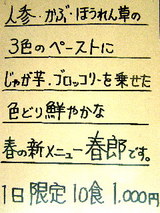 人参・かぶ・ほうれん草の
3色のペーストに
じゃが芋、ブロッコリーを乗せた
色どり鮮やかな
春の新メニュー春郎です。
1日限定10食 1,000円